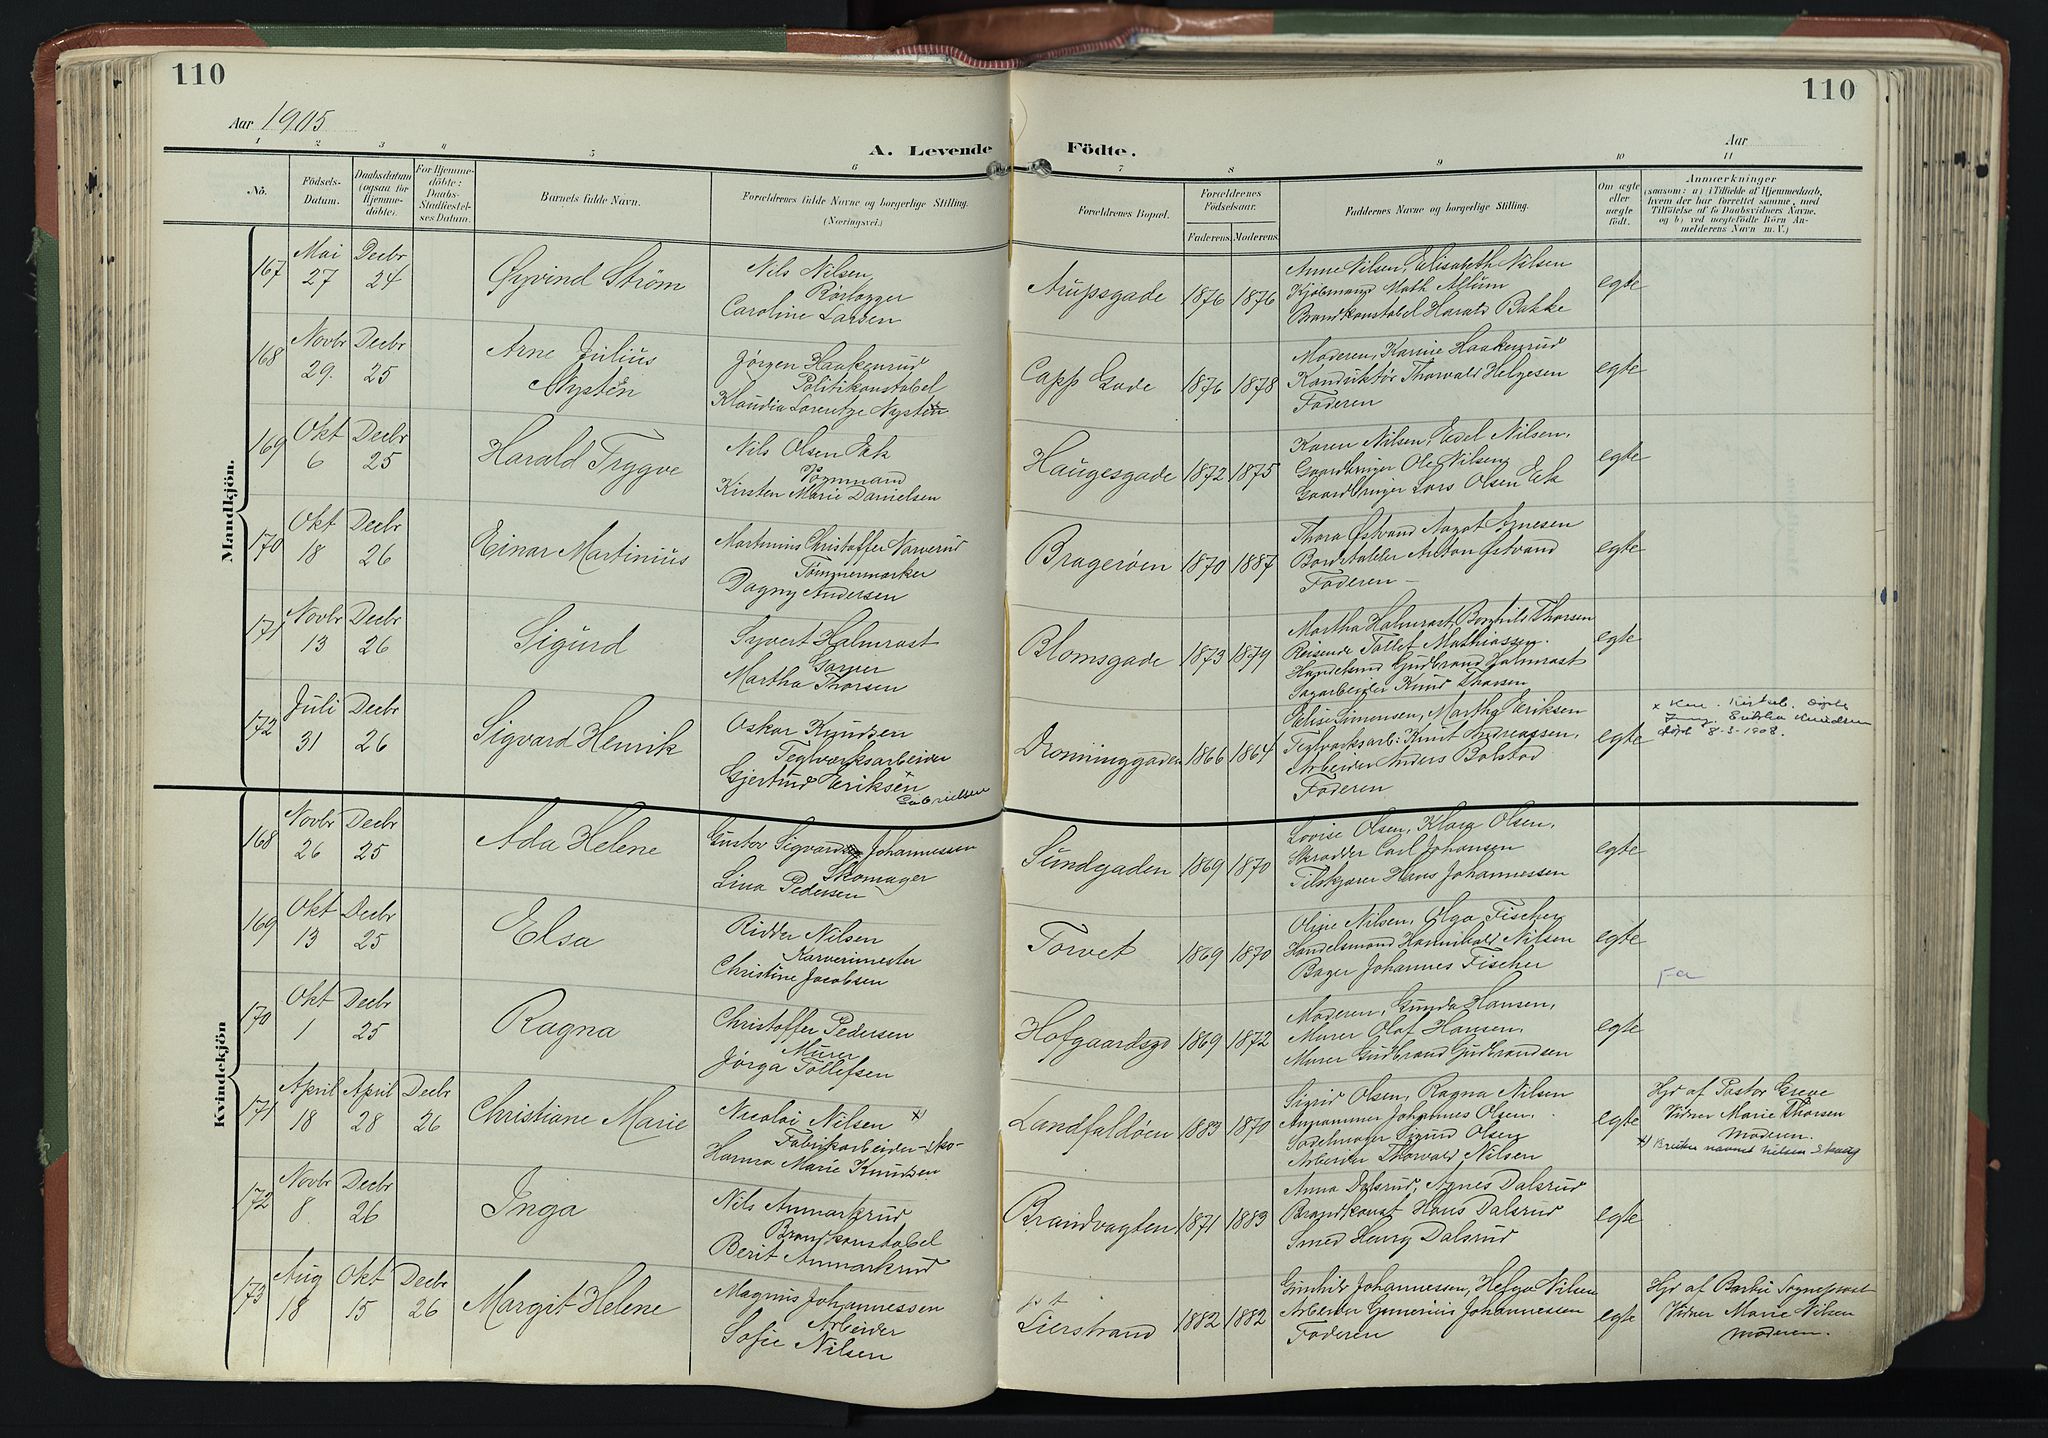 110
110
Aar 1905
Aar
A. Levende Födte.
1 2 3 4 5 6 7 8 9 10 11
No.
Födsels-Datum.
Daabsdatum (ogsaa for Hjemme-döbte).
For Hjemme-döbte: Daabs-Stadfæstel-ses Datum.
Barnets fulde Navn.
Forældrenes fulde Navne og borgerlige Stilling.
(Næringsvei.)
Forældrenes Bopæl.
Forældrenes Födselsaar.
Faderens. Moderens.
Faddernes Navne og borgerlige Stilling.
Om ægte eller uægte födt.
Anmærkninger
Mandkjön.
167 Mai 27 Decbr 24 Øyvind Ström
Nils Nilsen,
Rörlægger
Caroline Larsen
Arupsgade 1876 1876
Anne Nilsen, Elisabeth Nilsen
Kjöbmand Math Altum
Brandkonstabel Harald Bakke
egte
168 Novbr 29. Decbr 25 Arne Julius
Nystén
Jörgen Haakenrud
Politikonstabel
Klaudia Lorentze Nystén
Capp Gade 1876 1878
Moderen, Karine Haakenrud
Konduktör Thorvald Helgesen
Faderen
egte
169 Okt 6 Decbr 25 Harald Trygve
Nils Olsen Eek
Kirsten Marie Danielsen
Haugesgade 1872 1875
Karen Nilsen, Edel Nilsen,
Gaardbruger Ole Nilsen,
Gaardbruger Lars Olsen Eek
egte
170 Okt 18 Decbr 26 Einar Martinius
Martinius Christoffer Narverud
Tömmermerker
Dagny Andersen
Bragerøen 1870 1887
Thora Østvand Aagot Arnesen
Bordstabler Anton Østvand
Faderen —
egte
171 Novbr 13 Decbr 26 Sigurd
Syvert Halmrast
Garver
Martha Thorsen
Blomsgade 1873 1879
Martha Halmrast, Borghild Thorsen
Reisende Tollef Mathiassen.
Handelsmd Gudbrand Halmrast
Sagarbeider Knud Thorsen
egte
172 Juli 31 Decbr 26 Sigvard Henrik
Oskar Knudsen
Teglværksarbeider
Gjertrud Eriksen x
Gabrielsen
Dronninggaden 1866 1864
Elise Simonsen, Marthe Eriksen
Teglværksarb: Knut Andreassen,
Arbeider Anders Bolstad
Faderen
egte
död 8-3-1908.
Kvindekjön
168 Novbr 26 Decbr 25 Ada Helene
Gustav Sigvard Johannessen
Skomager
Lina Pedersen
Sundgaden 1869 1870
Lovise Olsen, Klara Olsen,
Skrædder Carl Johansen
Tilskjærer Hans Johannessen
egte
169 Okt 13 Decbr 25 Elsa
Ridder Nilsen
Garverimester
Christine Jacobsen
Torvet 1869 1870
Oline Nilsen, Olga Fischer
Handelsmand Hannibald Nilsen
Bager Johannes Fischer
egte
Fa
170 Okt 1 Decbr 25 Ragna
Christoffer Pedersen
Murer
Jørga Tollefsen
Hofgaardsgd 1869 1872
Moderen, Gunda Hansen,
Murer Olaf Hansen,
Murer Gudbrand Gudbrandsen
egte
171 April 18 April 28 Decbr 26 Christiane Marie
Nicolai Nilsen x)
Fabrikarbeider – sko-
Hanna Marie Knudsen
Landfaldøen 1883 1870
Sigrid Olsen, Ragna Nilsen
Johannes Olsen.
Sadelmager Sigurd Olsen
Arbeider Thorvald Nilsen
egte
Hjd af Pastor Greve
Vidner Marie Thorsen
Moderen.
x) Bruker navnet Nilsen Skaug
172 Novbr 8 Decbr 26 Inga
Nils Anmarkrud
Brandkonstabel
Berit Anmarkrud
Brandvagten 1871 1883
Anna Dalsrud, Agnes Dalsrud
Brandkonst Hans Dalsrud
Smed Henry Dalsrud
egte
173 Aug 18 Okt 15 Decbr 26 Margit Helene
Magnus Johannessen
Arbeider
Sofie Nilsen
pt
Lierstrand 1882 1882
Gunhild Johannessen, Helga Nilsen
Arbeider Gunerius Johannessen
Faderen
egte
Vidner Marie Nilsen
Moderen.